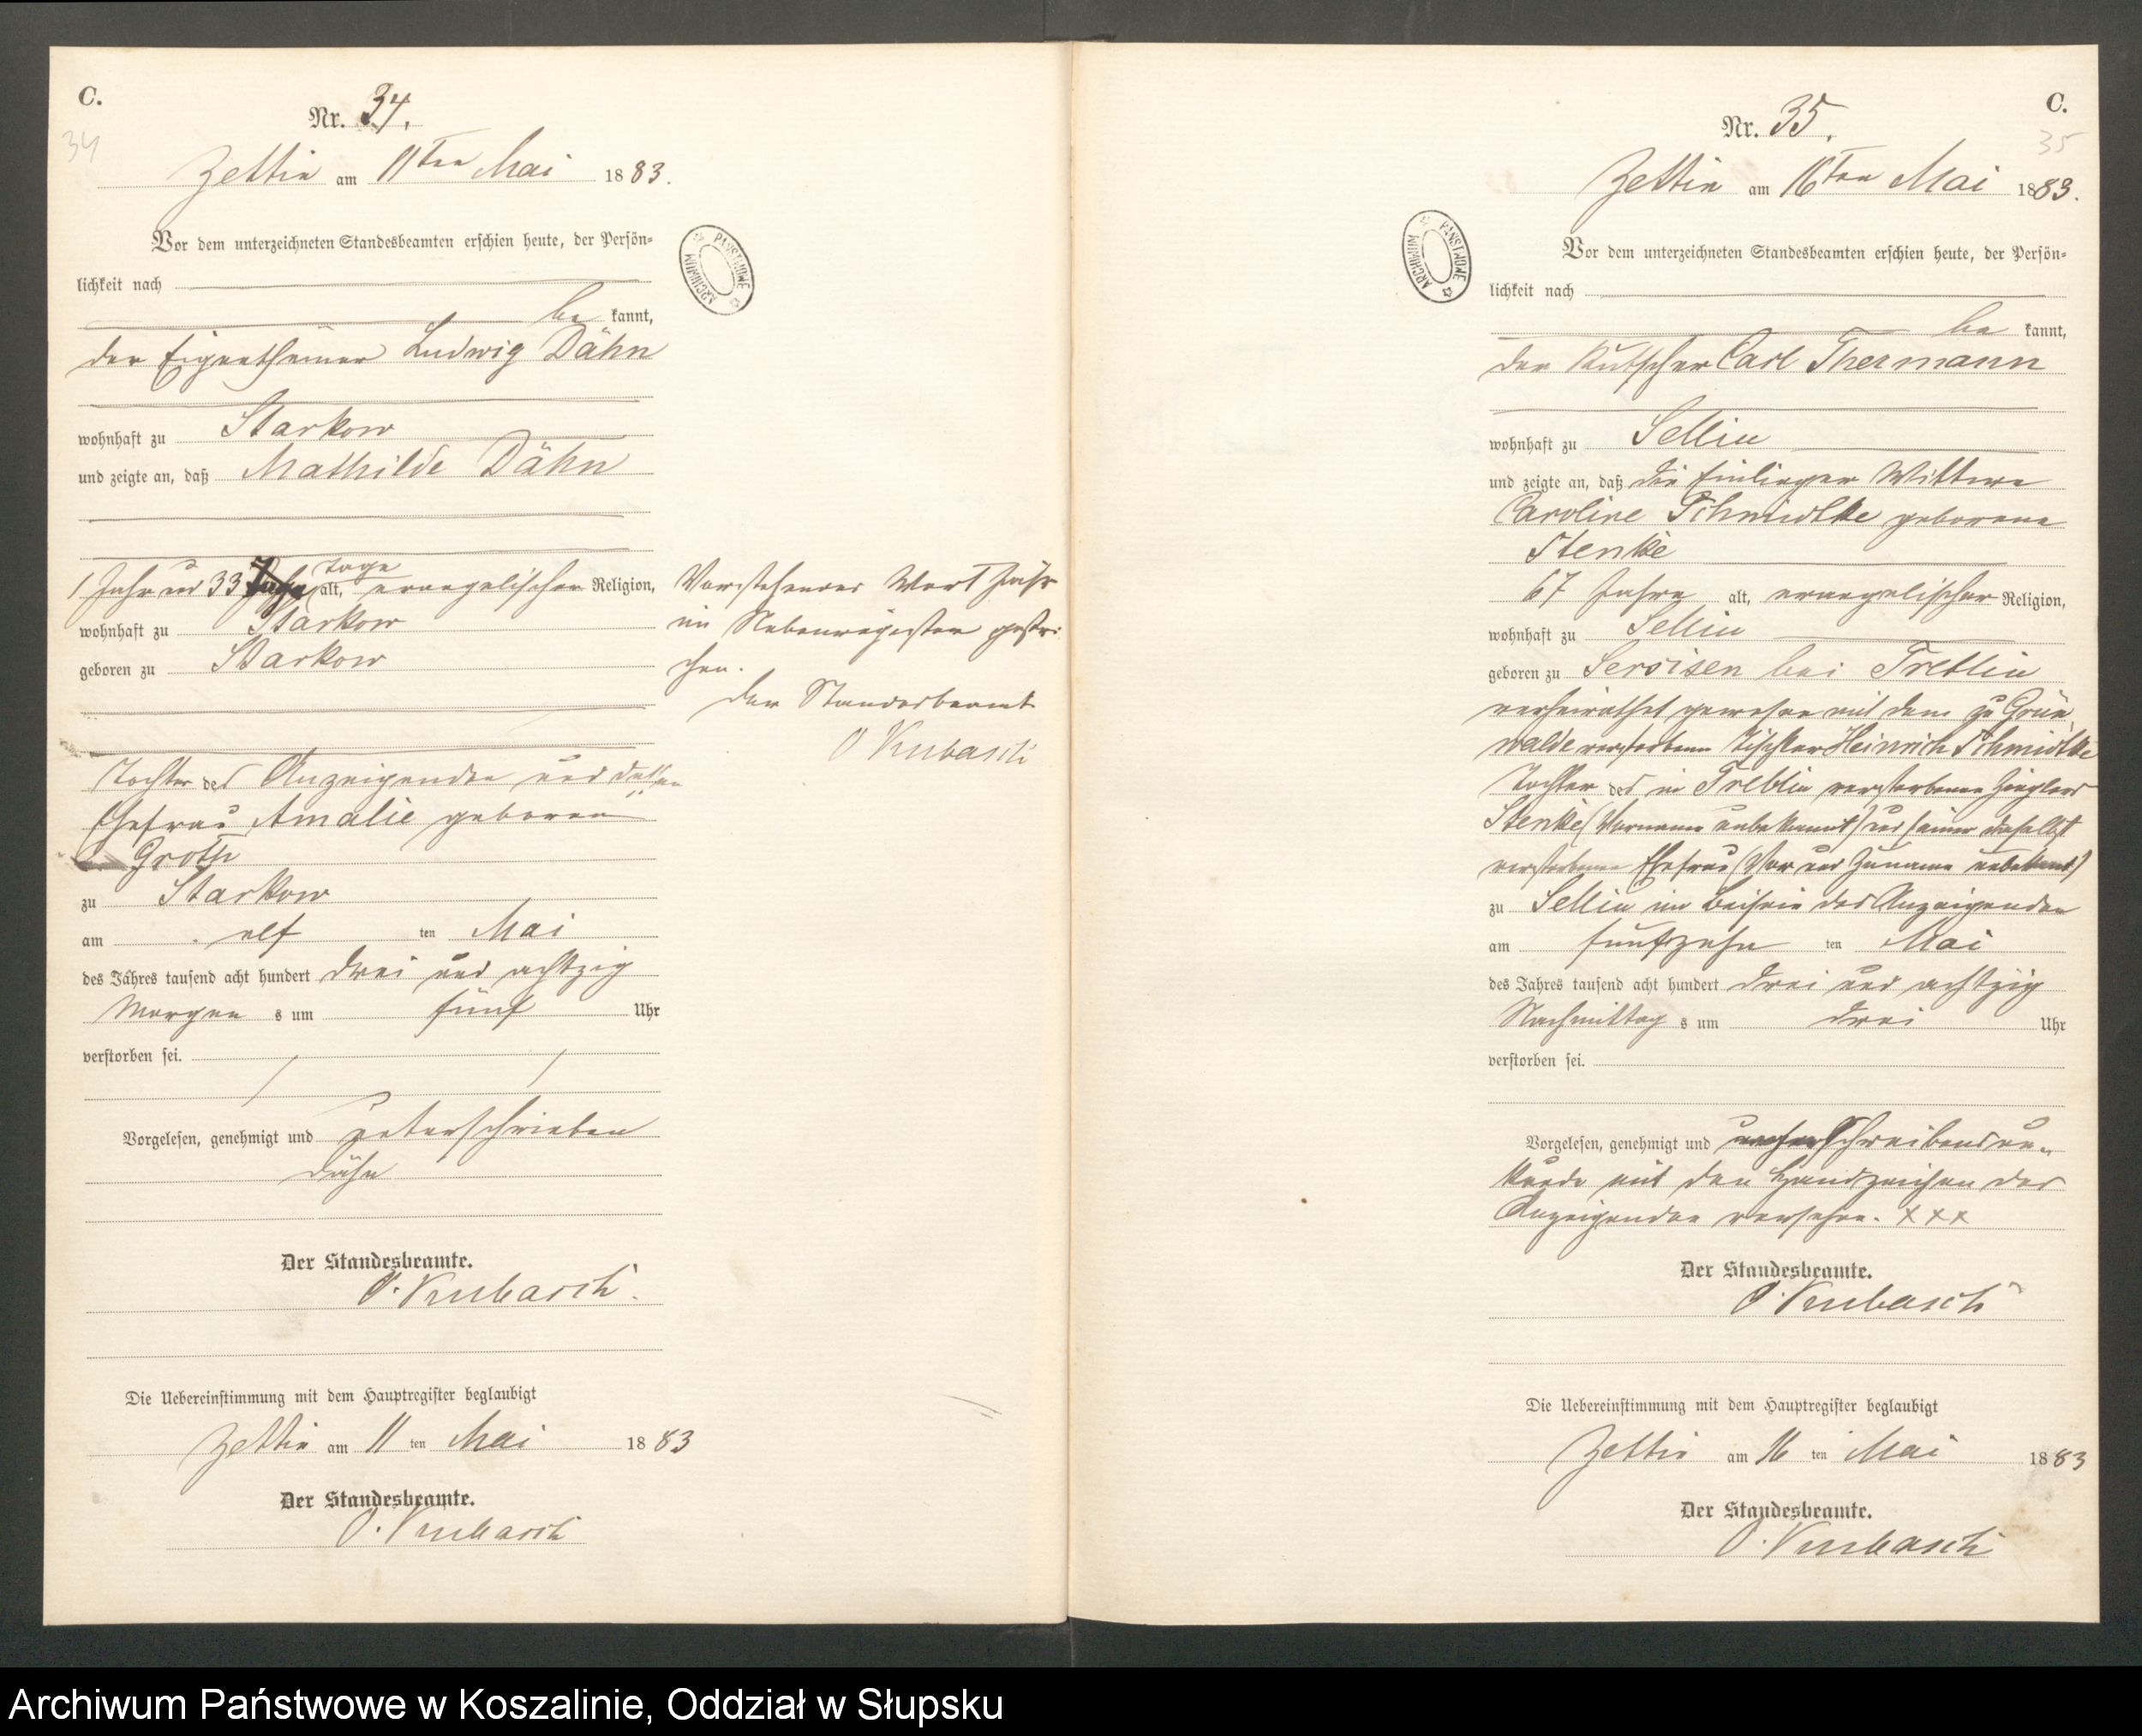 C.
Nr. 34.
34
Zettin am 11ten Mai 1883.
Vor dem unterzeichneten Standesbeamten erschien heute, der Persön-
lichkeit nach
be kannt,
der Eigenthümer Ludwig Dähn
wohnhaft zu Starkow
und zeigte an, daß Mathilde Dähn
1 Jahr und 33 Jahr Tage alt, evangelischer Religion,
wohnhaft zu Starkow
geboren zu Starkow
Tochter des Anzeigenden und dessen
Ehefrau Amalie geborene
Groth
zu Starkow
am elf ten Mai
des Jahres tausend acht hundert drei und achtzig
Morgen s um fünf Uhr
verstorben sei.
Vorgelesen, genehmigt und unterschrieben
Dähn
Der Standesbeamte.
O. Kubasch.
Die Uebereinstimmung mit dem Hauptregister beglaubigt
Zettin am 11 ten Mai 1883
Der Standesbeamte.
O. Kubasch
PANSTWOWE ARCHIWUM
Vorstehendes Wort Jahr
im Nebenregister gestri-
chen.
Der Standesbeamte
O Kubasch
C.
Nr. 35.
35
Zettin am 16ten Mai 1883.
PANSTWOWE ARCHIWUM
Vor dem unterzeichneten Standesbeamten erschien heute, der Persön-
lichkeit nach
be kannt,
der Kutscher Carl Thermann
wohnhaft zu Sellin
und zeigte an, daß die Einlieger Wittwe
Caroline Schmidtke geborene
Stenke
67 Jahre alt, evangelischer Religion,
wohnhaft zu Sellin
geboren zu bei Treblin
verheirathet gewesen mit dem zu Grün
walde verstorbenen Tischler Heinrich Schmidtke
Tochter des in Treblin verstorbenen Zieglers
Stenke (Vorname unbekannt) und seiner daselbst
verstorbenen Ehefrau (Vor und Zuname unbekannt)
zu Sellin im Beisein des Anzeigenden
am fünfzehn ten Mai
des Jahres tausend acht hundert drei und achtzig
Nachmittag s um drei Uhr
verstorben sei.
Vorgelesen, genehmigt und Schreibensun-
kunde mit den Handzeichen des
Anzeigenden versehen. XXX
Der Standesbeamte.
O. Kubasch
Die Uebereinstimmung mit dem Hauptregister beglaubigt
Zettin am 16 ten Mai 1883
Der Standesbeamte.
O. Kubasch
Archiwum Państwowe w Koszalinie, Oddział w Słupsku